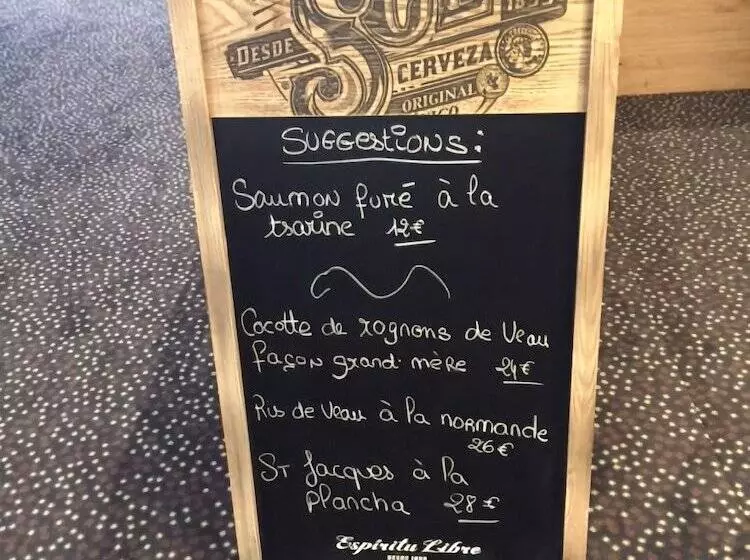 DESDE
SOL
1899
CERVEZA
ORIGINAL
SUGGESTIONS:
Saumon fumé à la
tsarine 12€
Cocotte de rognons de Veau
façon grand-mère 24€
Ris de Veau à la normande
26€
St Jacques à la
plancha 28€
Espíritu Libre
DESDE 1899